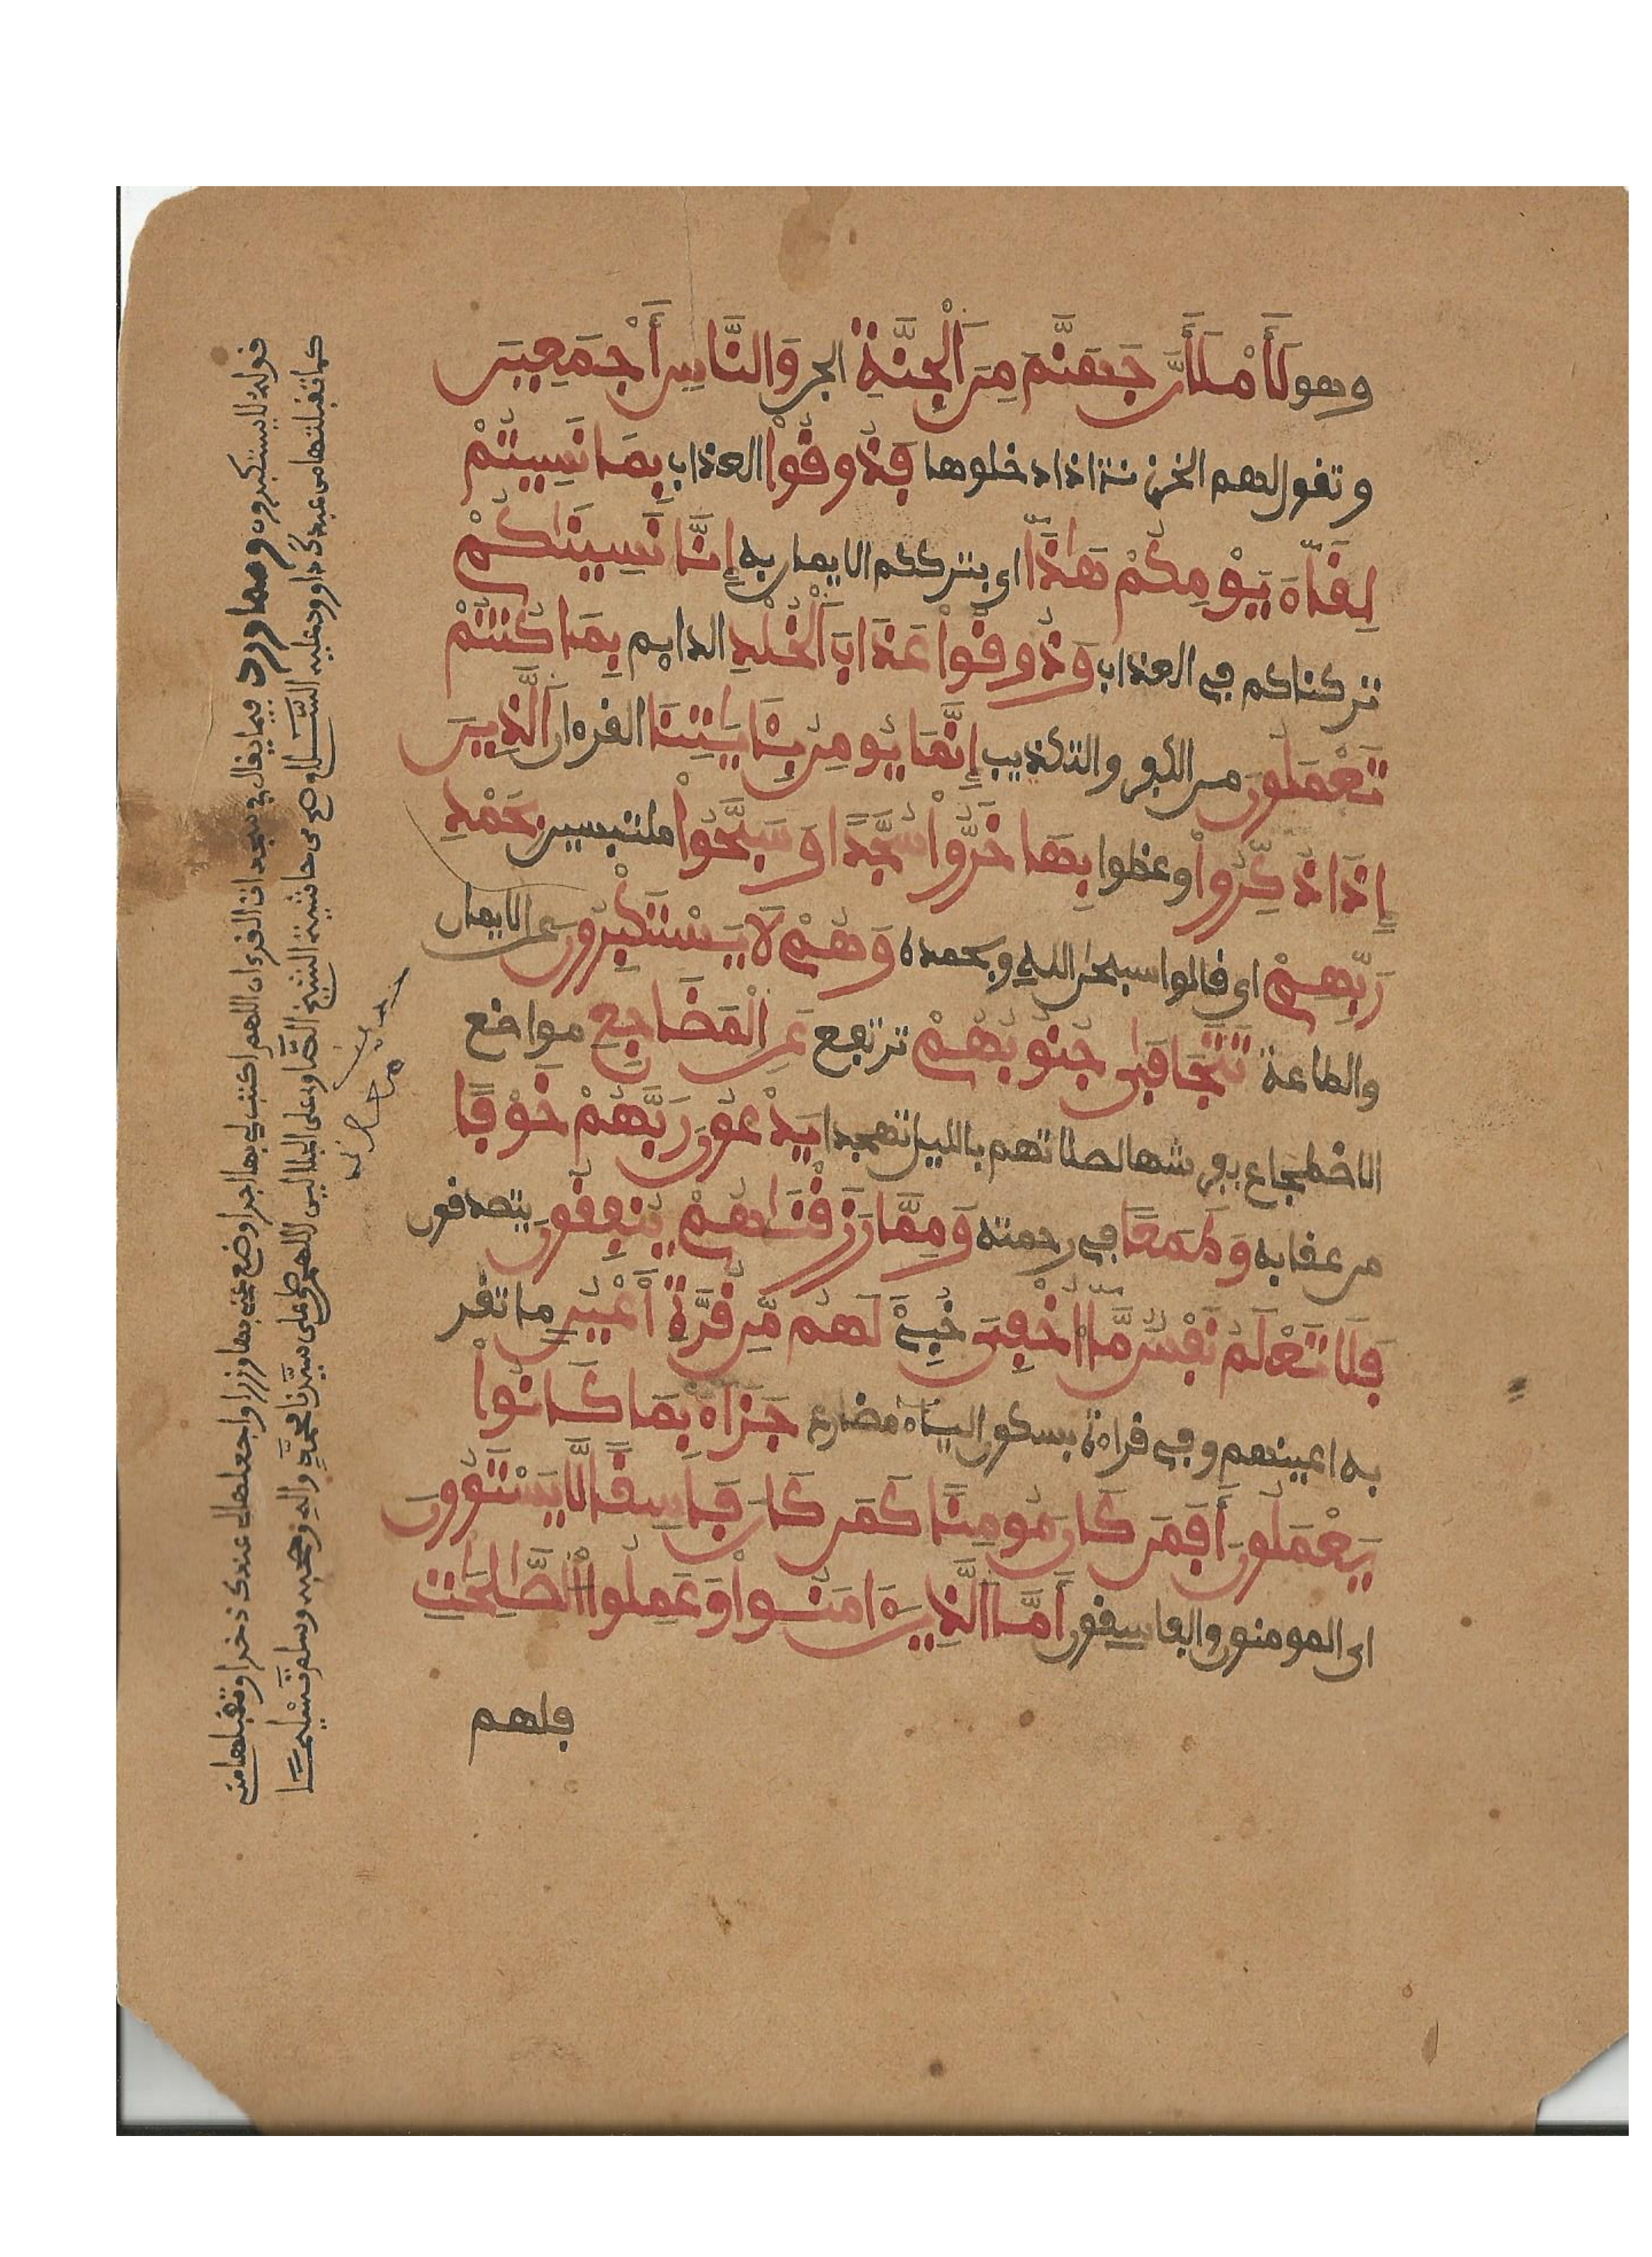 وهو لَأَمْلَأَنَّ جَهَنَّمَ مِنَ اَلْجِنَّةِ الجن وَالنَّاسِ أَجْمَعِينَ
وتقول لهم الخزنة اذا دخلوها فَذُوقُواْ العذاب بِمَا نَسِيتُمْ
لِقَآءَ يَوْمِكُمْ هَٰذَآ اي بترككم الايمان به إِنَّا نَسِينَٰكُمْ
تركناكم في العذاب وَذُوقُواْ عَذَابَ اَلْخُلْدِ الدايم بِمَا كُنتُمْ
تَعْمَلُونَ من الكفر والتكذيب إِنَّمَا يُومِنُ بِـَٔايَٰتِنَا القرءان اَلذِينَ
إِذَا ذُكِّرُواْ وعظوا بِهَا خَرُّواْ سُجَّدًا وَسَبَّحُواْ ملتبسين بِحَمْدِ
رَبِّهِمْ اي قالوا سبحن الله وبحمده وَهُمْ لَا يَسْتَكْبِرُونَ عن الايمان
والطاعة تَتَجَافَىٰ جُنُوبُهُمْ ترتفع عَنِ اِلْمَضَاجِعِ مواضع
الاضطجاع بفرشها لصلاتهم بالليل تهجدا يَدْعُونَ رَبَّهُمْ خَوْفًا
من عقابه وَطَمَعًا في رحمته وَمِمَّا رَزَقْنَٰهُمْ يُنفِقُونَ يتصدقون
فَلَا تَعْلَمُ نَفْسٌ مَّآ أُخْفِيَ خُبِئَ لَهُم مِّن قُرَّةِ أَعْيُنٍ ما تقر
به اعينهم وفي قراءة بسكون الياء مضارع جَزَآءَۢ بِمَا كَانُواْ
يَعْمَلُونَ أَفَمَن كَانَ مُومِنًا كَمَن كَانَ فَاسِقًا لَّا يَسْتَوُونَ
اي المومنون والفاسقون أَمَّا اَلذِينَ ءَامَنُواْ وَعَمِلُواْ اُلصَّٰلِحَٰتِ
فلهم
قوله لا يستكبرون ومما ورد فيما يقال في سجدات القرءان اللهم اكتب لي بها اجرا وضع عني بها وزرا واجعلها لي عندك ذخرا وتقبلها مني
كما تقبلتها من عبدك داوود عليه السَّلام وضع من حاشية الشيخ الصَّاوي على الجلالين اللهم صل على سيدنا محمد واله وصحبه وسلم تسليمًا